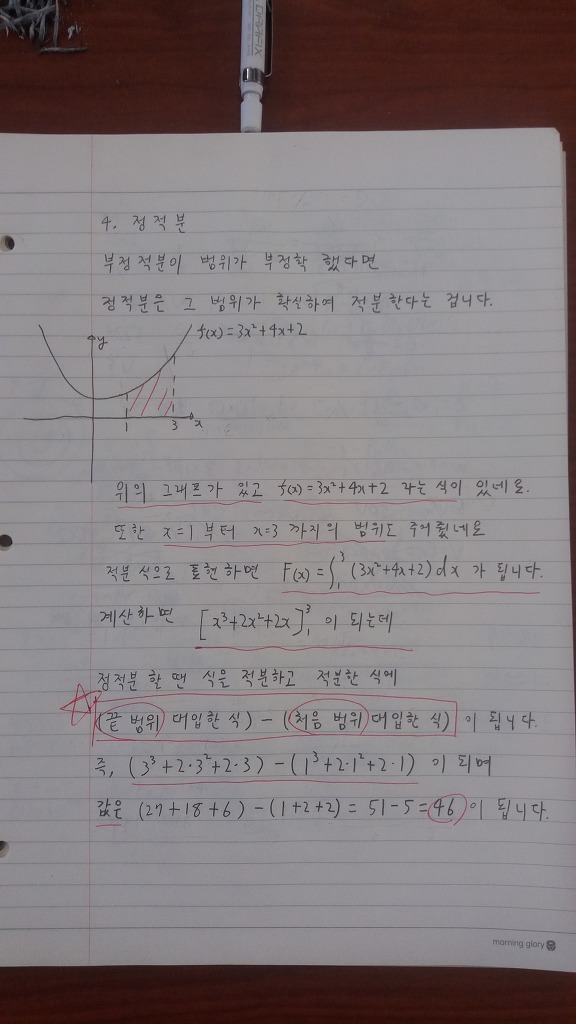 DRAFIX
4. 정적분
부정적분이 범위가 부정확 했다면
정적분은 그 범위가 확실하여 적분한다는 겁니다.
y f(x)=3x²+4x+2
1 3 x
위의 그래프가 있고 f(x)=3x²+4x+2 라는 식이 있네요.
또한 x=1 부터 x=3 까지의 범위도 주어졌네요
적분 식으로 표현하면 F(x)=∫₁³(3x²+4x+2)dx 가 됩니다.
계산하면 [x³+2x²+2x]₁³ 이 되는데
정적분 할 땐 식을 적분하고 적분한 식에
(끝 범위 대입한 식) - (처음 범위 대입한 식) 이 됩니다.
즉, (3³+2·3²+2·3)-(1³+2·1²+2·1) 이 되며
값은 (27+18+6)-(1+2+2)=51-5=46 이 됩니다.
morning glory